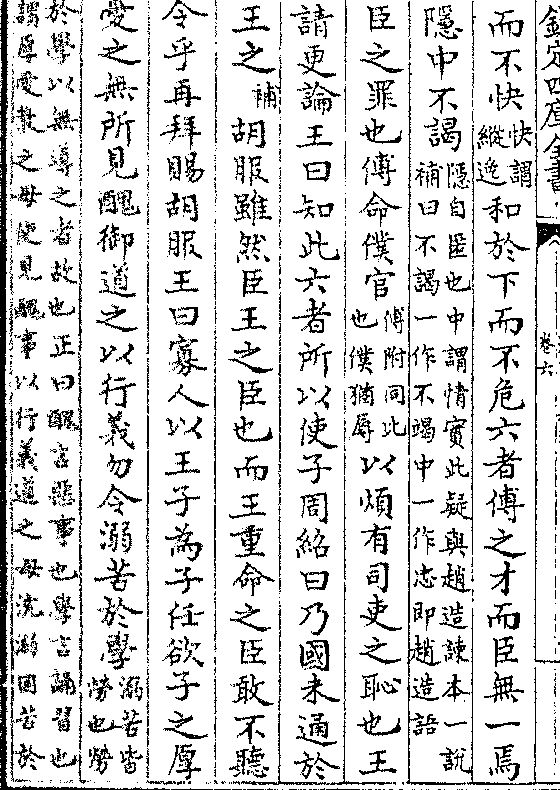 欽定四庫全書
卷六
而不快快謂縱逸和於下而不危六者傅之才而臣無一焉
隱中不謁隱自匿也中謂情實此疑與趙造諫本一說補曰不謁一作不竭中一作忠即趙造語
臣之罪也傅命僕官傅附同此也僕猶辱以煩有司吏之恥也王
請更論王曰知此六者所以使子周紹曰乃國未通於
王之補胡服雖然臣王之臣也而王重命之臣敢不聽
令乎再拜賜胡服王曰寡人以王子為子任欲子之厚
愛之無所見醜御道之以行義勿令溺苦於學溺苦皆勞也勞
於學以無導之者故也正曰醜言惡事也學言誦習也
謂厚愛教之毋使見醜事以行義道之毋流溺困苦於